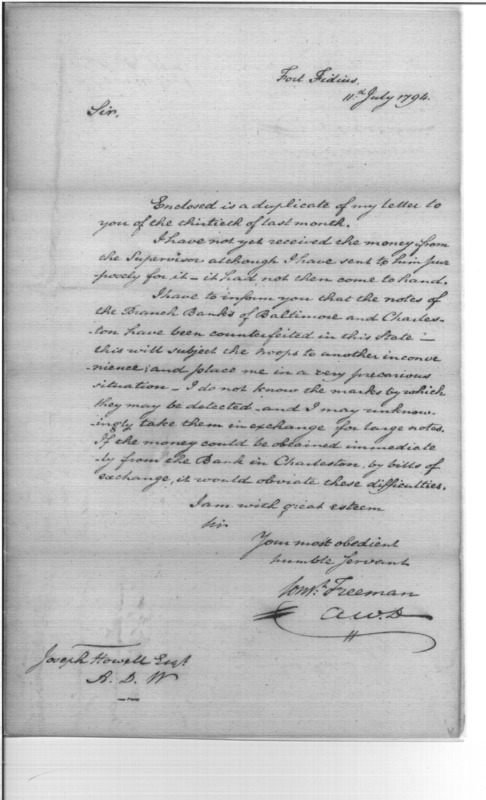 Fort Fidius,
11th July 1794.
Sir,
Enclosed is a duplicate of my letter to
you of the thirtieth of last month.
I have not yet received the money from
the Supervisor although I have sent to him pur
posely for it – it had not then come to hand.
I have to inform you that the notes of
the Branch Banks of Baltimore and Charles-
ton have been counterfeited in this State –
this will subject the troops to another inconve
nience; and place me in a very precarious
situation – I do not know the marks by which
they may be detected and I may unknow-
ingly take them in exchange for large notes.
If the money could be obtained immediate
ly from the Bank in Charleston by bills of
exchange, it would obviate these difficulties.
I am with great esteem
Sir
Your most obedient
humble Servant
Const. Freeman
A W. D
Joseph Howell Esqr.
A. D. W